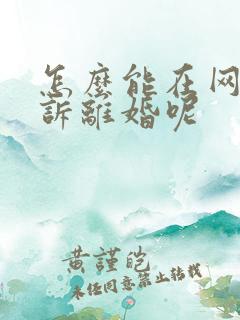 怎麼能在网
訴離婚呢
黄謹皅
未任同意禁止转载